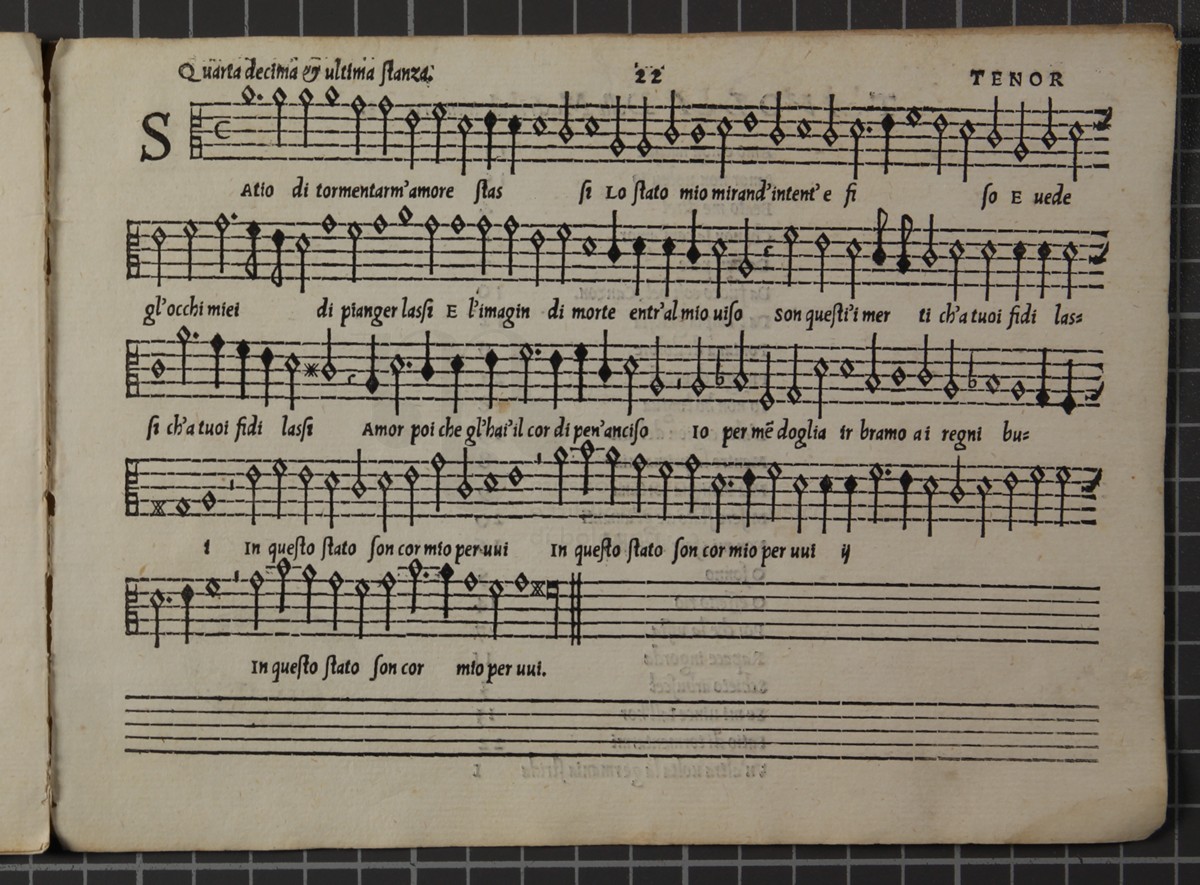 Quarta decima & ultima ſtanza. 22 TENOR
S
Atio di tormentarm'amore ſtas ſi Lo ſtato mio mirand'intent' e fi ſo E uede
gl'occhi miei di pianger laſſi E l'imagin di morte entr'al mio uiſo son queſti'i mer ti ch'a tuoi fidi las=
ſi ch'a tuoi fidi laſſi Amor poi che gl'hai'il cor di pen'anciſo Io per mẽ doglia ir bramo a i regni bu=
i In queſto ſtato ſon cor mio per uui In queſto ſtato ſon cor mio per uui ij
In queſto ſtato ſon cor mio per uui.